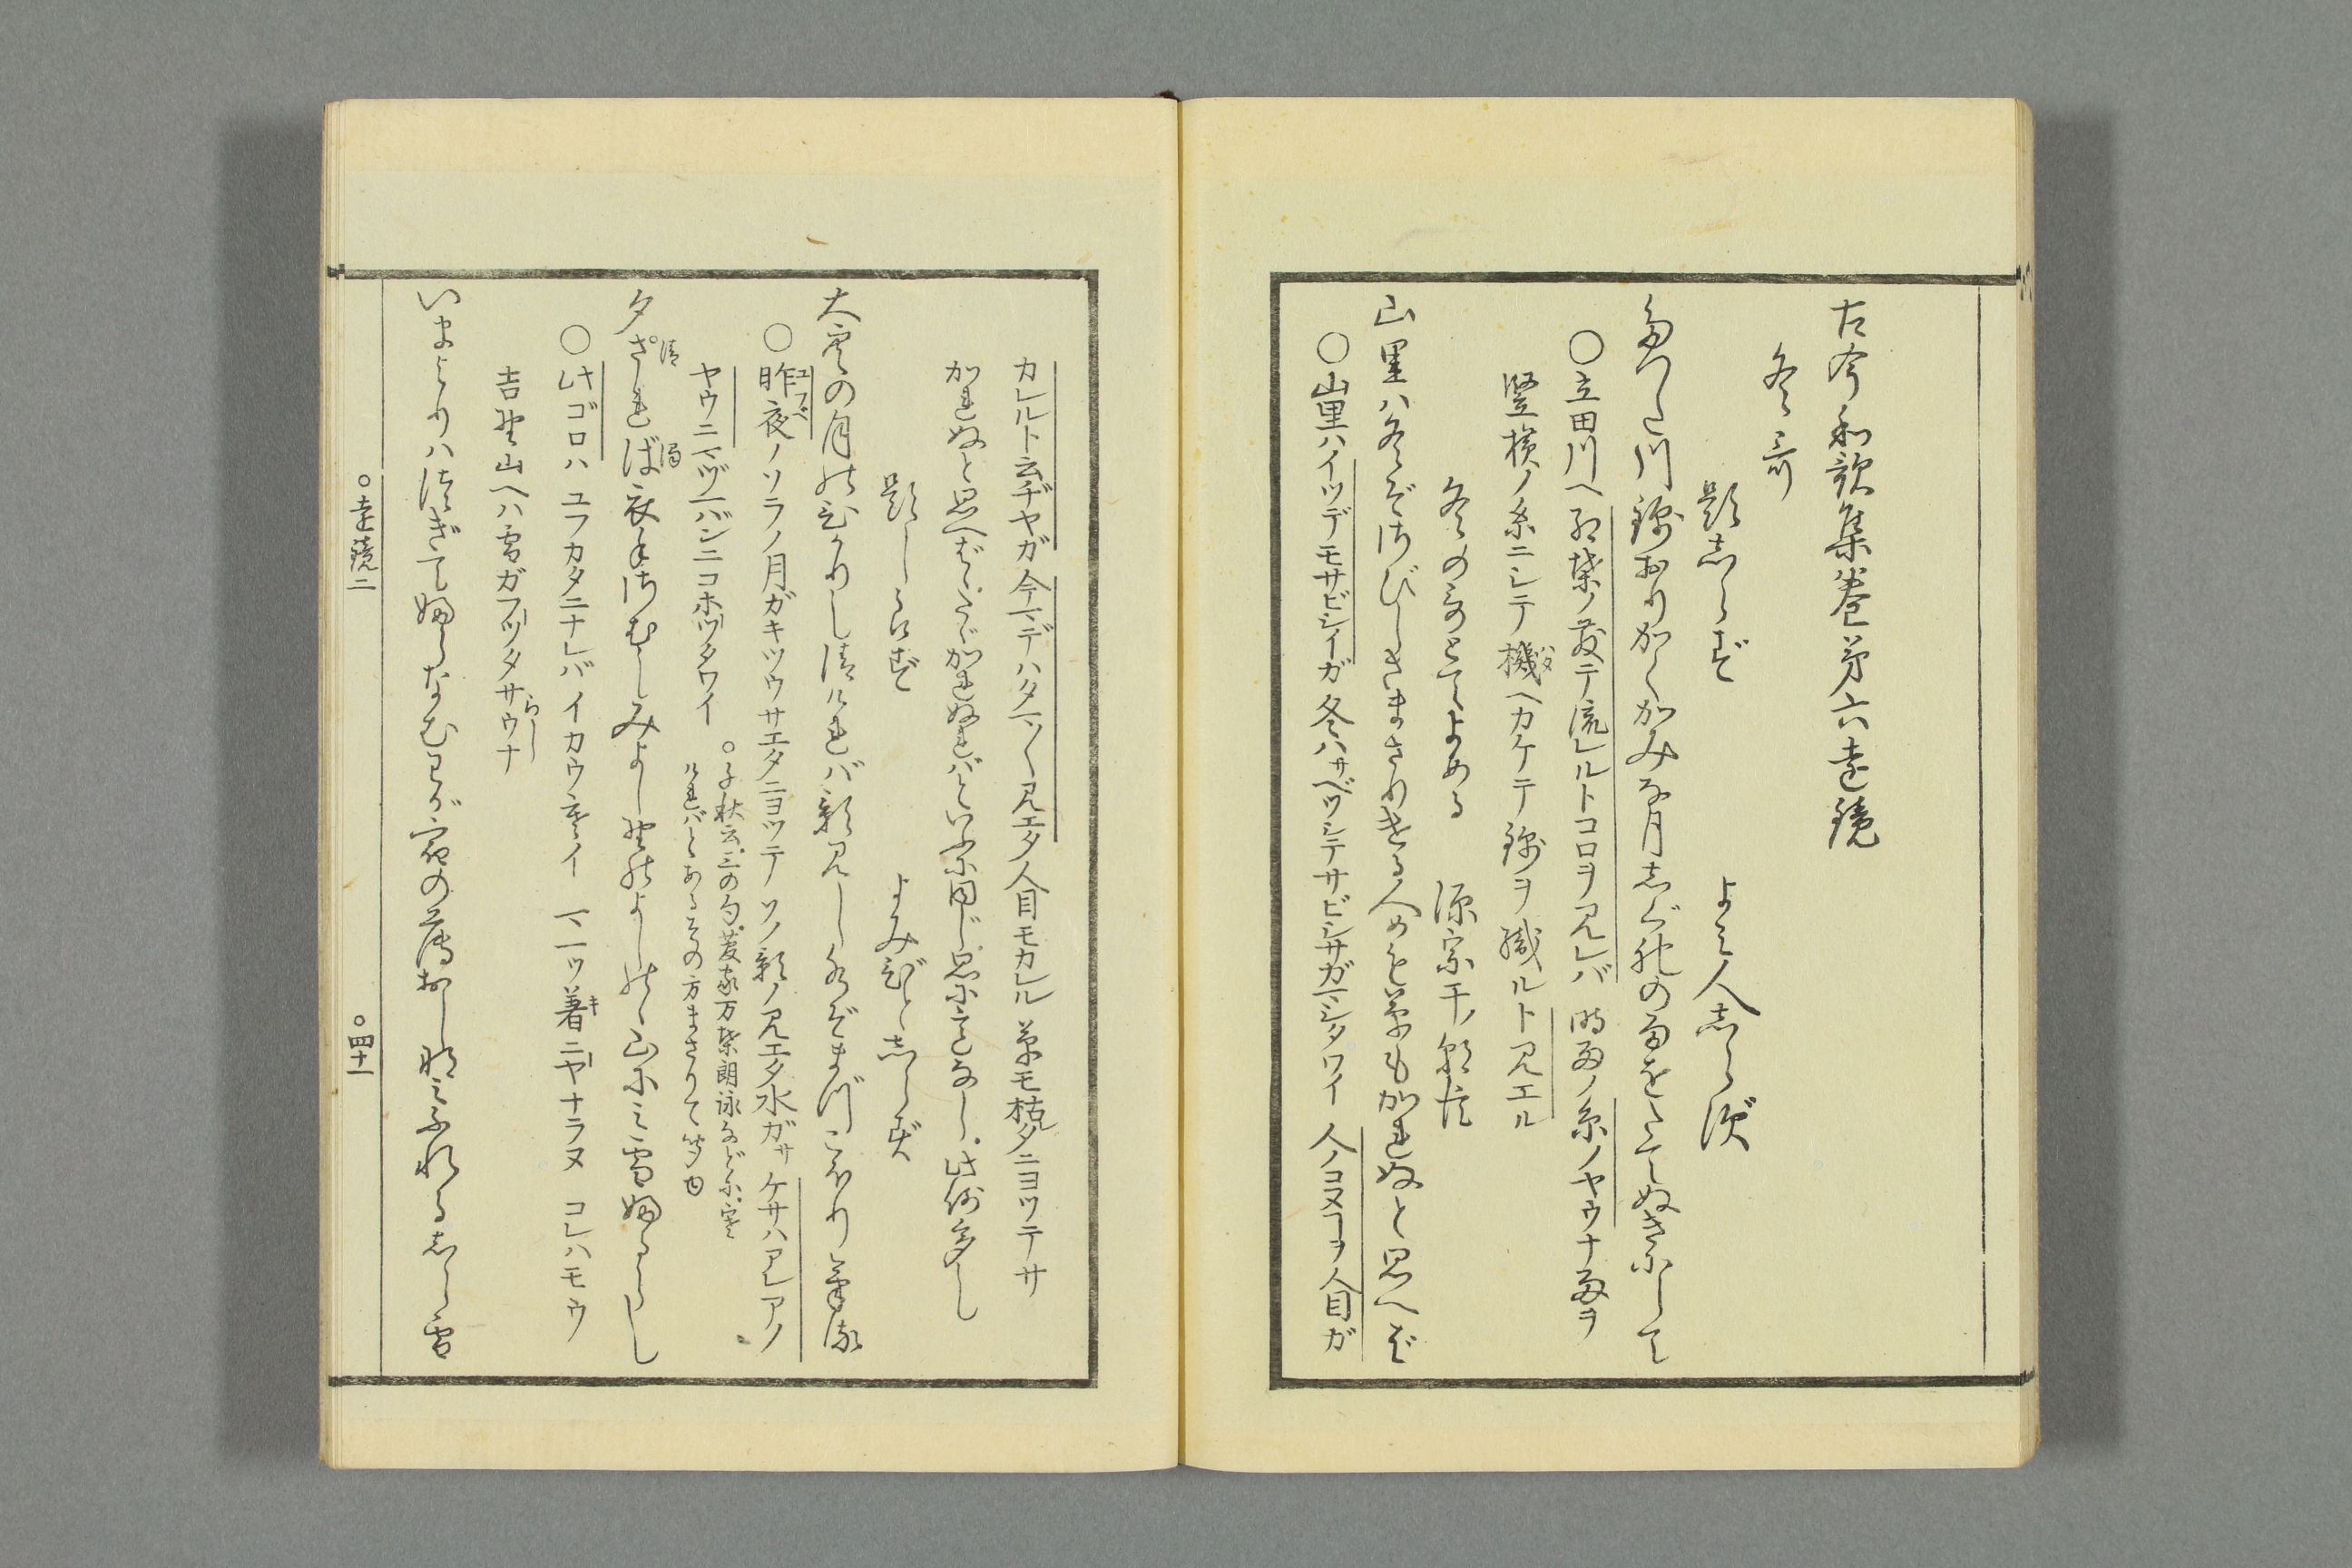 古今和歌集巻第六遠鏡
冬哥
題志らず
よみ人志らず
たつた川錦おりかくかみな月志ぐれの雨をたてぬきにして
○立田川ヘ紅葉ノ散テ流レルトコロヲ見レバ 時雨ノ糸ノヤウナ雨ヲ
竪横ノ糸ニシテ機ヘカケテ錦ヲ織ルト見エル
ハタ
冬の哥とてよめる
源宗于ノ朝臣
山里ハ冬ぞさびしさまさりける人めも草もかれぬと思へば
○山里ハイツデモサビシイガ 冬ハサベツシテサビシサガマシタワイ 人ノコヌヿヲ人目ガ
カレルト云ヂヤガ 今マデハタマ〳〵見エタ人目モカレル 草モ枯タニヨツテサ
かれぬと思へば、たゞかれぬれバといふに同じ、思に意なし、此例多し
題しらず
よみびと志らず
大空の月のひかりし清ければ影見し水ぞまづこほりける
○昨夜ノソラノ月ガキツウサエタニヨツテ ソノ影ノ見エタ水ガサ ケサハアレアノ
ユフベ
ヤウニマヅ一バンニコホツタワイ
○千秋云、三の句、菅家万葉朗詠などに、寒
ければとあるその方まさりて聞ゆ
夕されば衣手さむしみよしのゝよしのゝ山にみ雪ふるらし
清
濁
○此ゴロハ ユフカタニナレバイカウ寒イ マ一ツ着ニヤナラヌ コレハモウ
キ
吉野山ヘハ雪ガフツタサウナ
らし
いまよりハつぎてふらなむわが宿の薄おしなみふれる志ら雪
○遠鏡二
○四十一